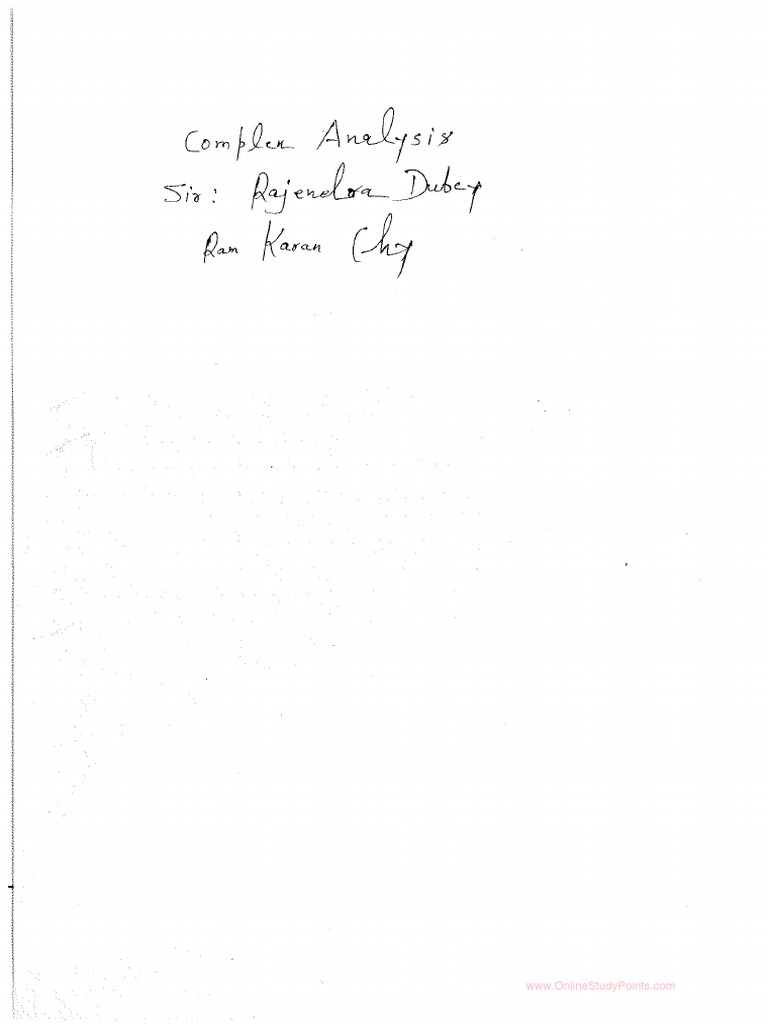 Complex Analysis
Sir: Rajendra Dubey
Ram Karan Chy
www.OnlineStudyPoints.com